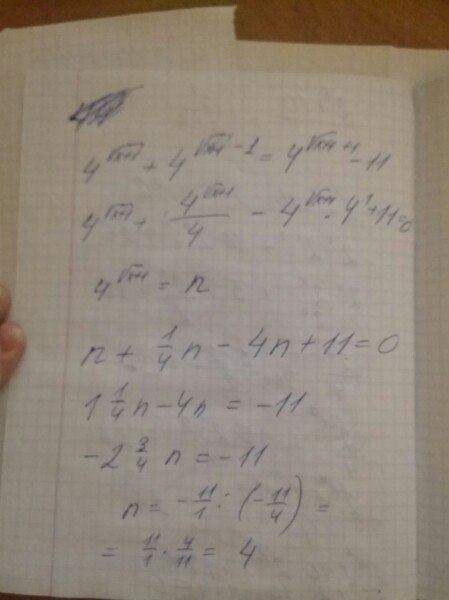 4^{\sqrt{x+1}} + 4^{\sqrt{x+1} - 1} = 4^{\sqrt{x+1} + 1} - 11
4^{\sqrt{x+1}} + \frac{4^{\sqrt{x+1}}}{4} - 4^{\sqrt{x+1}} \cdot 4^1 + 11 = 0
4^{\sqrt{x+1}} = n
n + \frac{1}{4} n - 4n + 11 = 0
1 \frac{1}{4} n - 4n = -11
-2 \frac{3}{4} n = -11
n = -\frac{11}{1} : (-\frac{11}{4}) =
= \frac{11}{1} \cdot \frac{4}{11} = 4